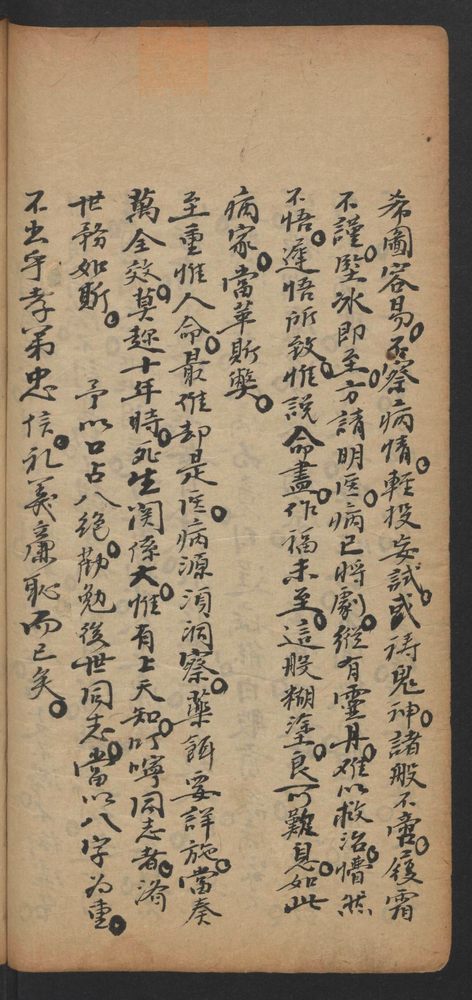 希圖容易。不察病情。輕投妄試。或禱鬼神。諸般不啻。履霜
不謹。堅冰即至。方請明医。病已將劇。縱有靈丹。难以救治。懵然
不悟。遲悟所致。惟説命盡。作福未至。這般糊塗。良可難息。如此
病家。當革斯獘。
至重惟人命。最难却是医。病源須洞察。藥餌要詳施。當奏
萬全效。莫趂十年時。死生関係大。惟有上天知。叮嚀同志者。濟
世務如斯。 予以口占八絶。勸勉後世同志。當以八字为重。
不出乎孝弟忠信。礼義廉恥而已矣。